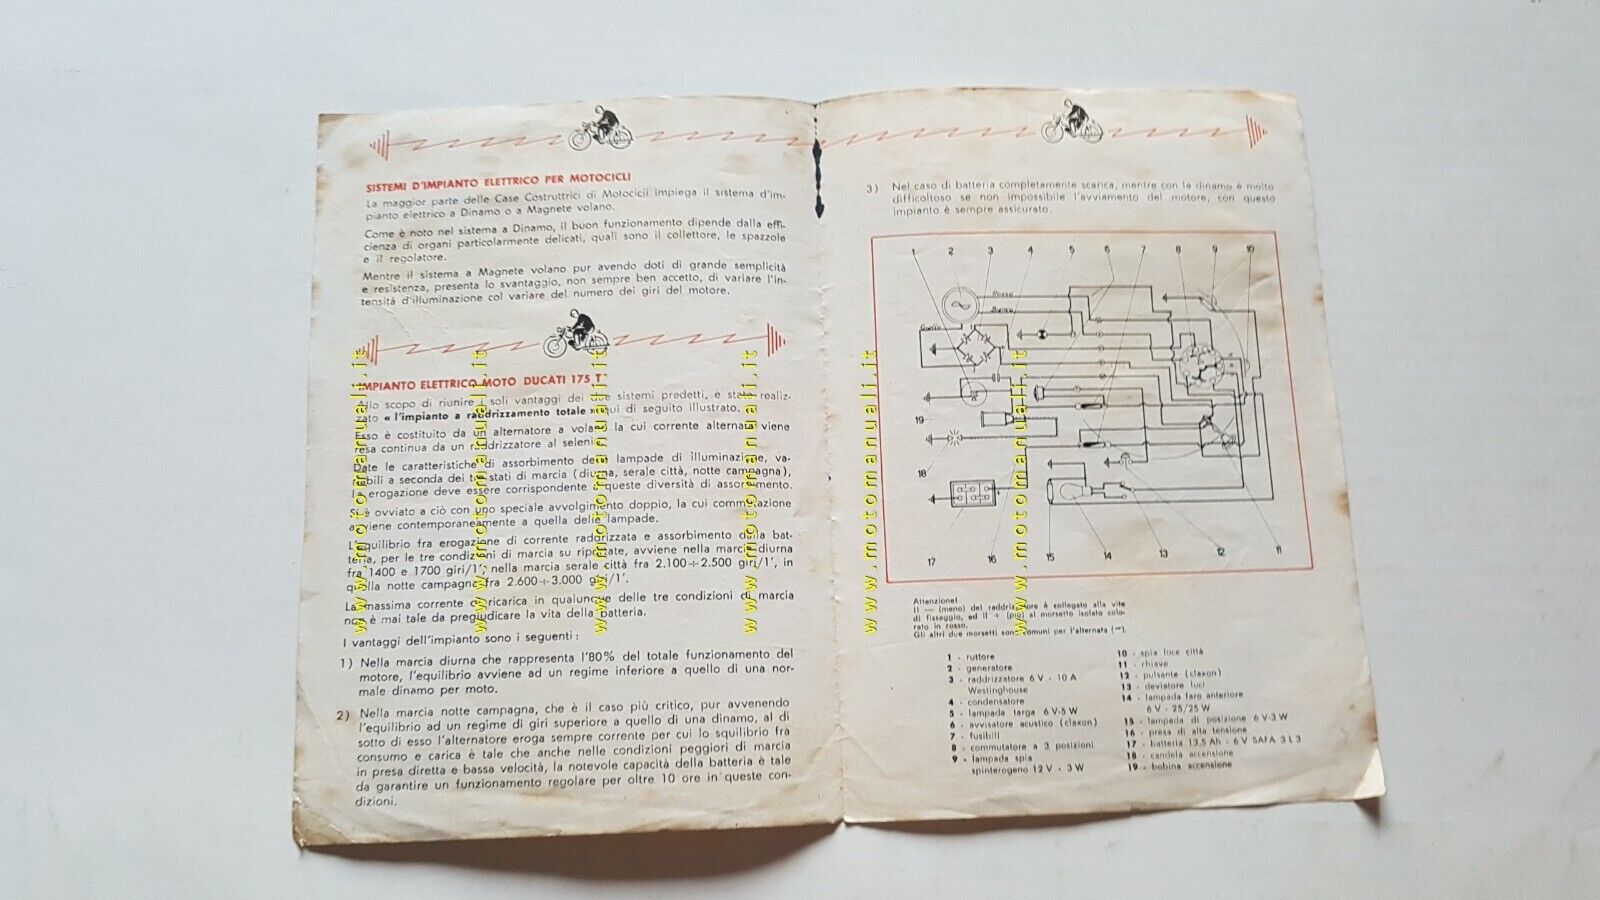 SISTEMI D'IMPIANTO ELETTRICO PER MOTOCICLI
La maggior parte delle Case Costruttrici di Motocicli impiega il sistema d'im-
pianto elettrico a Dinamo o a Magnete volano.
Come è noto nel sistema a Dinamo, il buon funzionamento dipende dalla effi-
cienza di organi particolarmente delicati, quali sono il collettore, le spazzole
e il regolatore.
Mentre il sistema a Magnete volano pur avendo doti di grande semplicità
e resistenza, presenta lo svantaggio, non sempre ben accetto, di variare l'in-
tensità d'illuminazione col variare del numero dei giri del motore.
IMPIANTO ELETTRICO MOTO DUCATI 175 T
Allo scopo di riunire i soli vantaggi dei due sistemi predetti, è stato realiz-
zato « l'impianto a raddrizzamento totale » qui di seguito illustrato.
Esso è costituito da un alternatore a volano la cui corrente alternata viene
resa continua da un raddrizzatore al selenio.
Date le caratteristiche di assorbimento delle lampade di illuminazione, va-
riabili a seconda dei tre stati di marcia (diurna, serale città, notte campagna),
la erogazione deve essere corrispondente a queste diversità di assorbimento.
Si è ovviato a ciò con uno speciale avvolgimento doppio, la cui commutazione
avviene contemporaneamente a quella delle lampade.
L'equilibrio fra erogazione di corrente raddrizzata e assorbimento della bat-
teria, per le tre condizioni di marcia su riportate, avviene nella marcia diurna
fra 1400 e 1700 giri/1', nella marcia serale città fra 2.100÷2.500 giri/1', in
quella notte campagna fra 2.600÷3.000 giri/1'.
La massima corrente di ricarica in qualunque delle tre condizioni di marcia
non è mai tale da pregiudicare la vita della batteria.
I vantaggi dell'impianto sono i seguenti :
1) Nella marcia diurna che rappresenta l'80% del totale funzionamento del
motore, l'equilibrio avviene ad un regime inferiore a quello di una nor-
male dinamo per moto.
2) Nella marcia notte campagna, che è il caso più critico, pur avvenendo
l'equilibrio ad un regime di giri superiore a quello di una dinamo, al di
sotto di esso l'alternatore eroga sempre corrente per cui lo squilibrio fra
consumo e carica è tale che anche nelle condizioni peggiori di marcia
in presa diretta e bassa velocità, la notevole capacità della batteria è tale
da garantire un funzionamento regolare per oltre 10 ore in queste con-
dizioni.
www.motomanuali.it www.motomanuali.it www.motomanuali.it www.motomanuali.it www.motomanuali.it www.motomanuali.it
3) Nel caso di batteria completamente scarica, mentre con la dinamo è molto
difficoltoso se non impossibile l'avviamento del motore, con questo
impianto è sempre assicurato.
1 2 3 4 5 6 7 8 9 10
Rosso
19
18
17 16 15 14 13 12 11
Attenzione!
Il — (meno) del raddrizzatore è collegato alla vite
di fissaggio, ed il + (più) al morsetto isolato colo-
rato in rosso.
Gli altri due morsetti sono comuni per l'alternata (~).
1 - ruttore
2 - generatore
3 - raddrizzatore 6 V - 10 A
Westinghouse
4 - condensatore
5 - lampada targa 6 V-5 W
6 - avvisatore acustico (claxon)
7 - fusibili
8 - commutatore a 3 posizioni
9 - lampada spia
spinterogeno 12 V - 3 W
10 - spia luce città
11 - chiave
12 - pulsante (claxon)
13 - deviatore luci
14 - lampada faro anteriore
6 V - 25/25 W
15 - lampada di posizione 6 V-3 W
16 - presa di alta tensione
17 - batteria 13,5 Ah - 6 V SAFA 3 L 3
18 - candela accensione
19 - bobina accensione